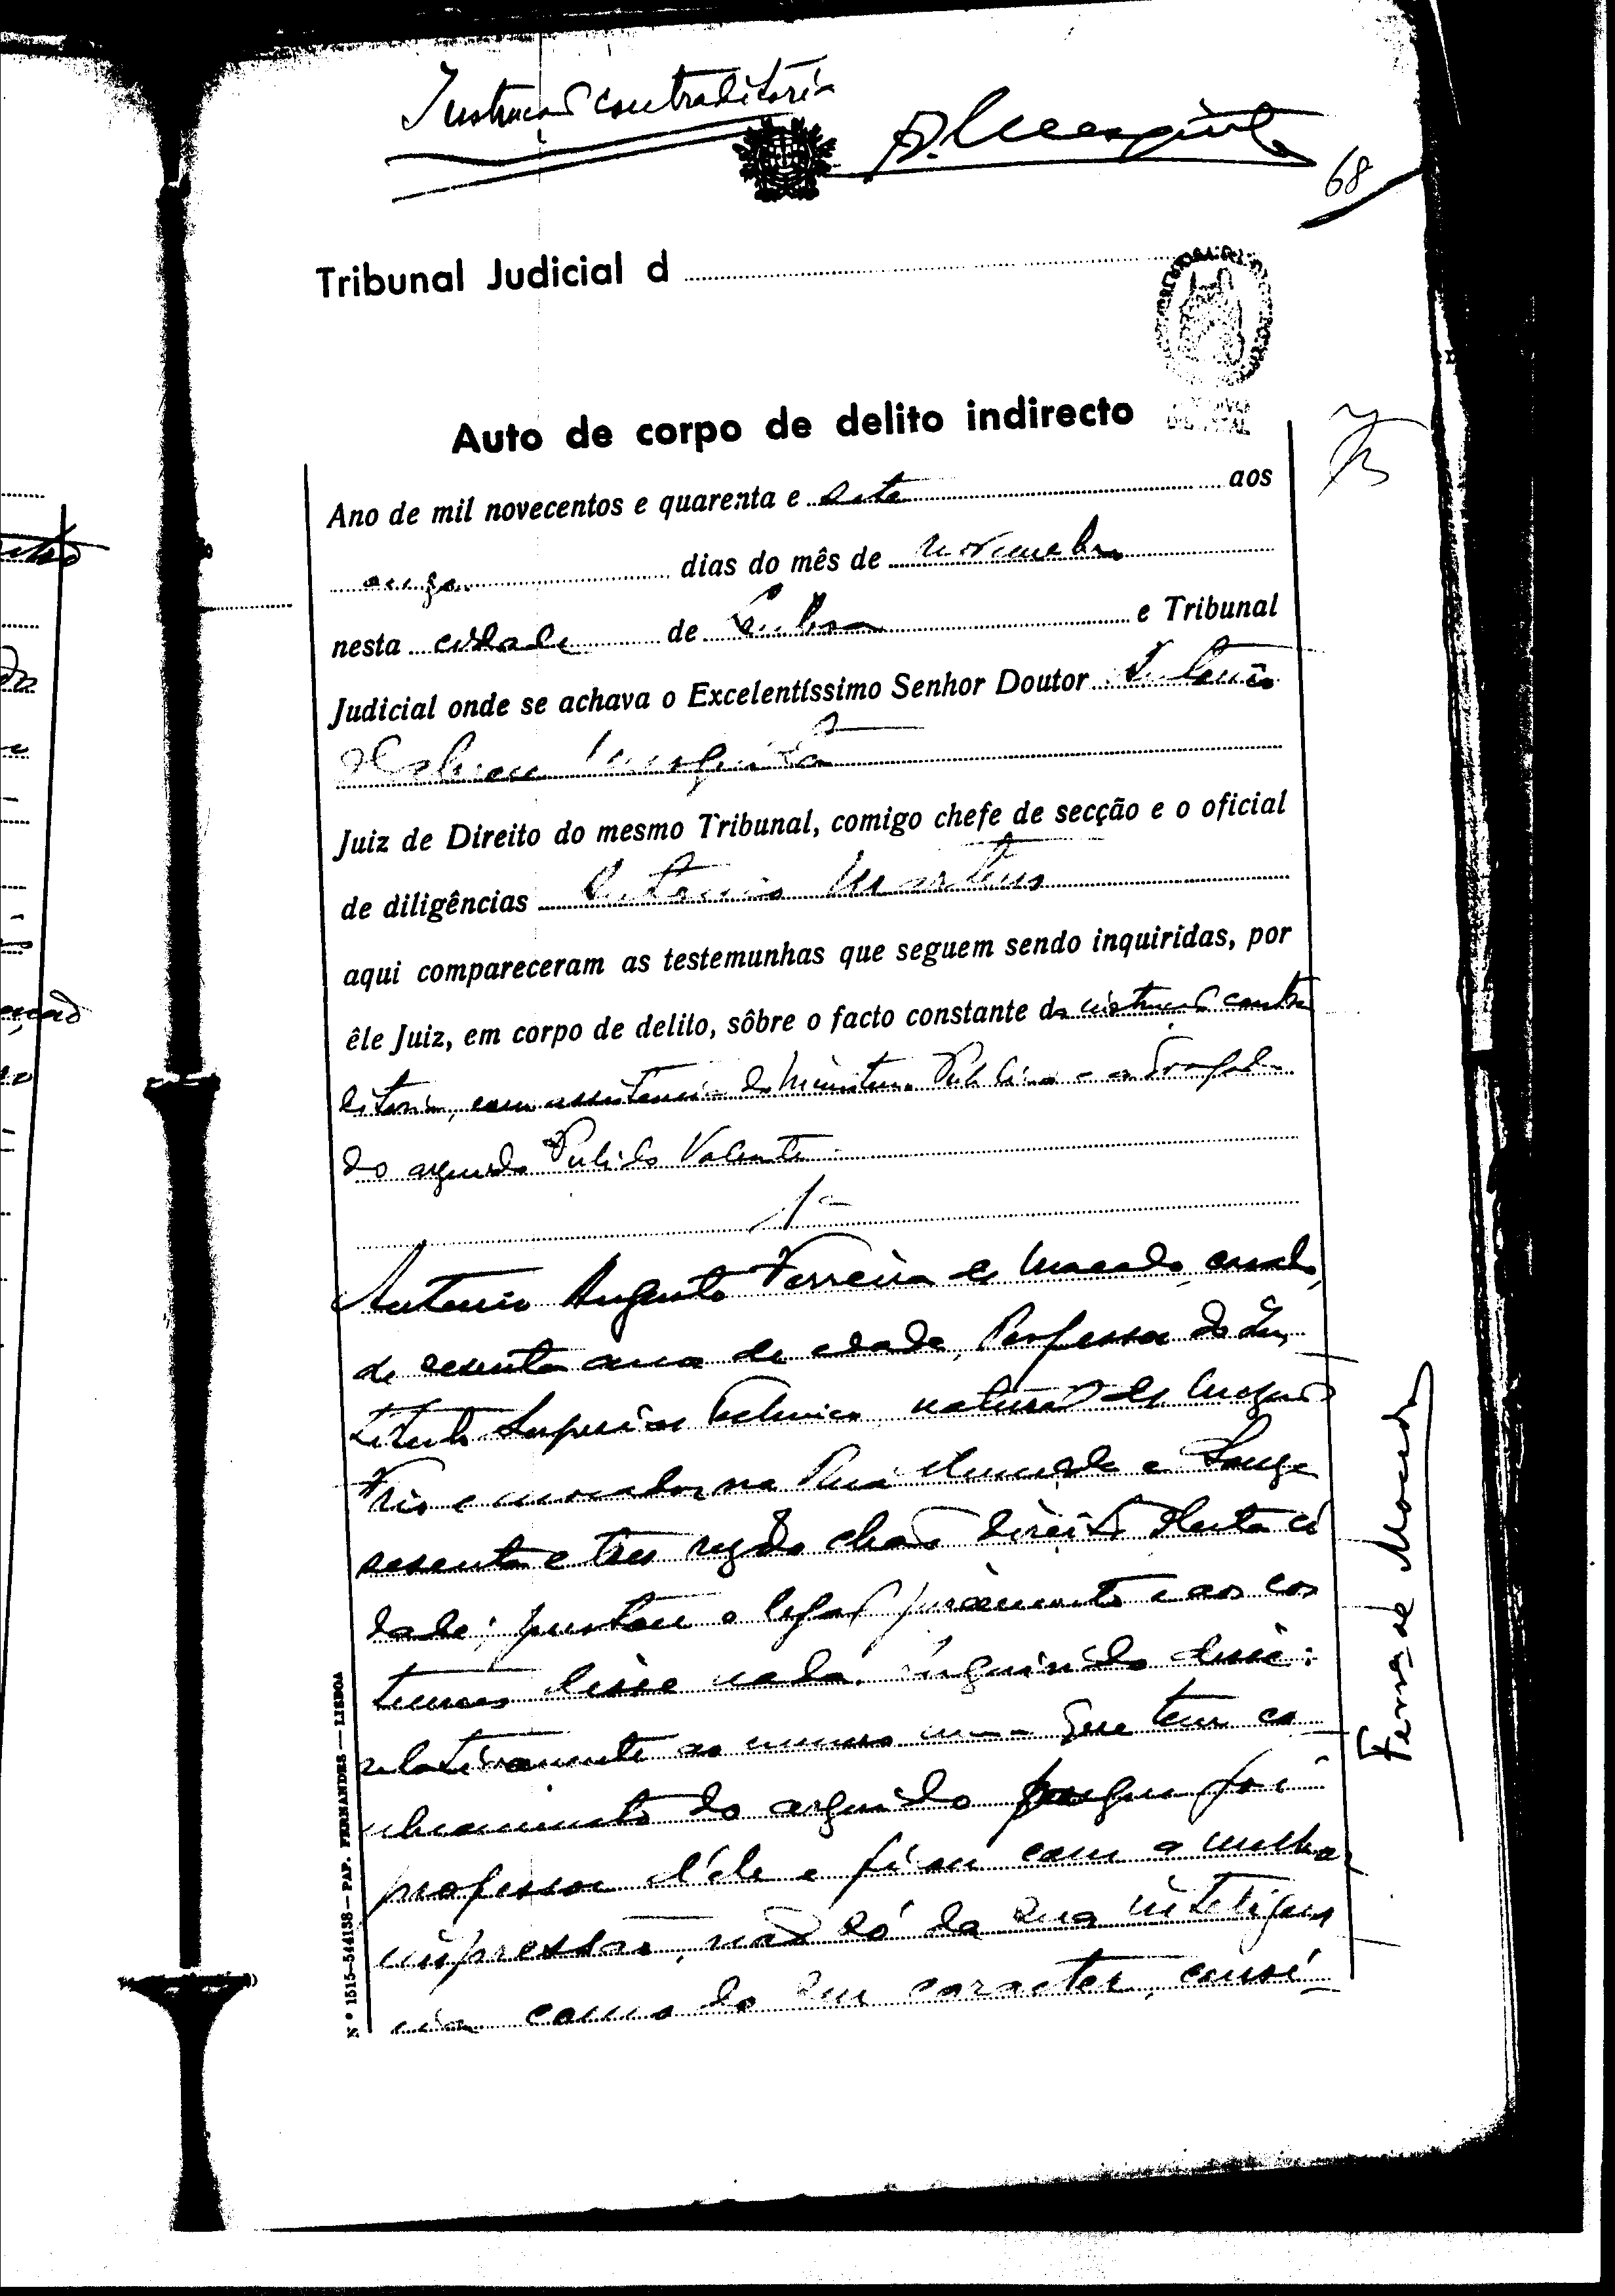 Instrução contraditoria
68
Tribunal Judicial d
Auto de corpo de delito indirecto
Ano de mil novecentos e quarenta e sete aos
onze dias do mês de novembro
nesta cidade de Lisboa e Tribunal
Judicial onde se achava o Excelentíssimo Senhor Doutor Antonio
Mesquita
Juiz de Direito do mesmo Tribunal, comigo chefe de secção e o oficial
de diligências Antonio Martins
aqui compareceram as testemunhas que seguem sendo inquiridas, por
êle Juiz, em corpo de delito, sôbre o facto constante da instrução contra
ditoria, com assistencia do Ministerio Publico e advogado
do arguido Pulido Valente
1ª
Antonio Augusto Ferreira de Macedo, casado,
de sesenta anos de edade, Professor do Ins
tituto Superior Technico natural de Mesão
Frio e morador na Rua e Sousa
sesenta e tres rez do chão direito desta ci
dade; prestou o legal juramento e aos cos
tumes disse nada. Inquirido disse:
relativamente ao numero um - Que tem co
nhecimento do arguido porque foi
professor d'ele e ficou com a melhor
impressão, não só da sua inteligen
cia como do seu caracter, consi
Ferreira de Macedo
N.º 1515-544138 — PAP. FERNANDES — LISBOA